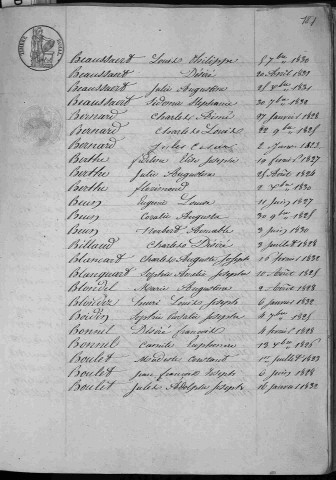 184
TIMBRE ROYAL
Beaussaert Louis Philippe 5 7bre 1830
Beaussaert Désiré 20 Avril 1829
Beaussaert Julie Augustine 1831
Beaussaert Sidonie Stéphanie 30 7bre 1830
Bernard Charles Aimé 27 Janvier 1828
Bernard Charles Louis 22 9bre 1825
Bernard Jules César 2 Janvier 1823
Berthe Elise Josephe 19 Février 1827
Berthe Julie Augustine 28 Août 1824
Berthe Florimond 2 1830
Beun Eugénie Louise 11 Juin 1827
Beun Coralie Augusta 30 9bre 1828
Beun Norbert Aimable 3 Juin 1830
Billaud Charles Désiré 3 Juillet 1828
Blancart Charles Auguste Joseph 16 Février 1832
Blanquart Sophie Amélie Josephe 10 Août 1825
Blondel Marie Augustine 2 Août 1828
Louis Josephe 6 Janvier 1832
Boidin Sophie Josephe 4 7bre 1825
Bonnel Désiré François 4 Février 1828
Bonnel Camille 13 1825
Boulet Modeste Constant 1er Juillet 1823
Boulet Jean François Joseph 6 Juin 1828
Boulet Jules Adolphe Joseph 16 Janvier 1832